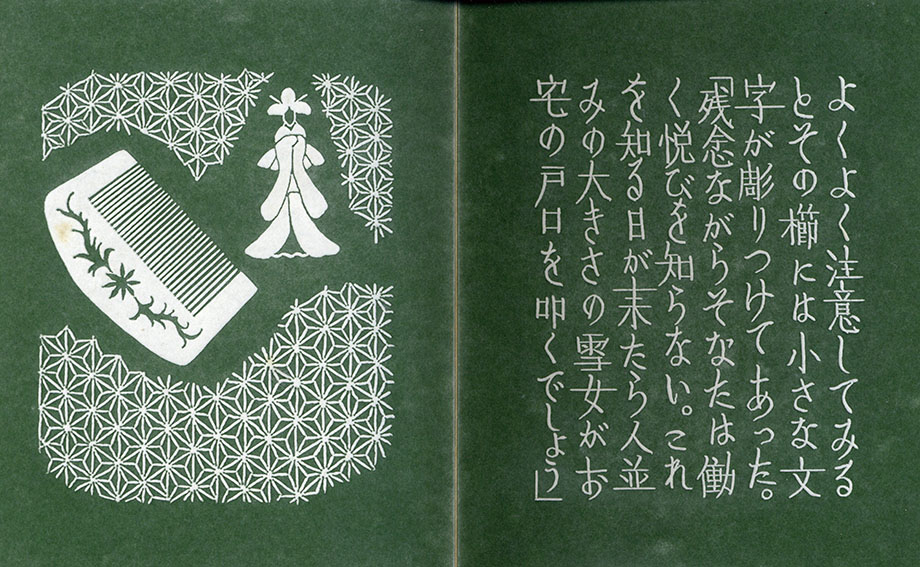 よくよく注意してみる
とその櫛には小さな文
字が彫りつけてあった。
「残念ながらそなたは働
く悦びを知らない。これ
を知る日が来たら人並
みの大きさの雪女がお
宅の戸口を叩くでしょう」